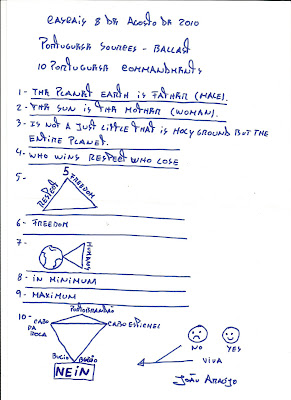 CASCAIS 8 DA AGOSTO DA 2010
PORTUGUASA SOURCES - BALLAST
10 PORTUGUASA COMMANDMANTS
1 - THA PLANAT EARTH IS FATHAR (MALE).
2 - THA SUN IS THA MOTHAR (WOMAN).
3 - IS NOT A JUST LITTLE THAT IS HOLY GROUND BUT THE
ENTIRE PLANET.
4 - WHO WINS RESPECT WHO LOSE
5 - RESPECT 5 FREEDOM
6 - FREEDOM
7 - HUMANS
8 - IN MINIMUM
9 - MAXIMUM
10 - CABO DA ROCA
PORTOBRANDÃO
CABO ESPICHEL
BUGIO
NEIN
NO YES
VIVA
JOÃO ARAÚJO